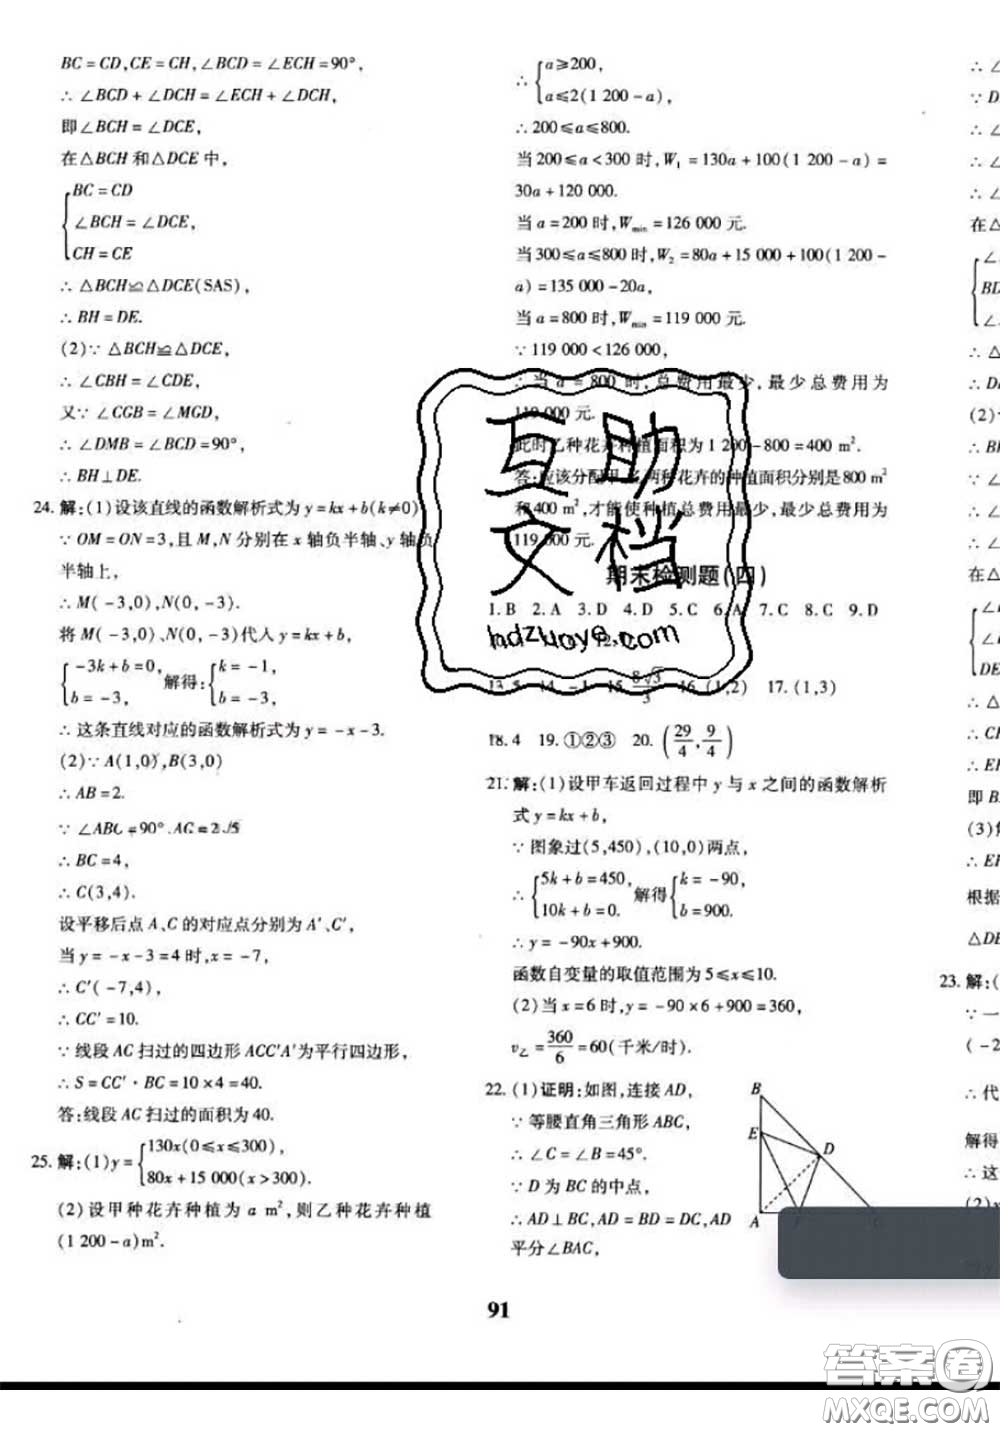 BC = CD,CE = CH,∠BCD = ∠ECH = 90°,
∴ ∠BCD + ∠DCH = ∠ECH + ∠DCH,
即∠BCH = ∠DCE,
在△BCH 和△DCE 中,
BC = CD
∠BCH = ∠DCE,
CH = CE
∴ △BCH≌△DCE(SAS),
∴ BH = DE.
(2)∵ △BCH≌△DCE,
∴ ∠CBH = ∠CDE,
又∵ ∠CGB = ∠MGD,
∴ ∠DMB = ∠BCD = 90°,
∴ BH⊥DE.
24. 解:(1)设该直线的函数解析式为 y = kx + b(k≠0)
∵ OM = ON = 3,且 M,N 分别在 x 轴负半轴、y 轴负
半轴上,
∴ M( -3,0),N(0, -3).
将 M( -3,0)、N(0, -3)代入 y = kx + b,
{-3k + b = 0, b = -3, 解得:{k = -1, b = -3,
∴ 这条直线对应的函数解析式为 y = -x -3.
(2)∵ A(1,0),B(3,0)
∴ AB = 2.
∵ ∠ABC = 90°,AC = 2√5
∴ BC = 4,
∴ C(3,4).
设平移后点 A、C 的对应点分别为 A′、C′,
当 y = -x -3 = 4 时,x = -7,
∴ C′( -7,4),
∴ CC′ = 10.
∵ 线段 AC 扫过的四边形 ACC′A′为平行四边形,
∴ S = CC′ · BC = 10 ×4 = 40.
答:线段 AC 扫过的面积为 40.
25. 解:(1)y = {130x(0≤x≤300), 80x + 15 000(x > 300).
(2)设甲种花卉种植为 a m²,则乙种花卉种植
(1 200 - a)m².
∴ {a≥200, a≤2(1 200 - a),
∴ 200≤a≤800.
当 200≤a < 300 时,W₁ = 130a + 100(1 200 - a) =
30a + 120 000.
当 a = 200 时,Wmin = 126 000 元.
当 300≤a≤800 时,W₂ = 80a + 15 000 + 100(1 200 -
a) = 135 000 - 20a,
当 a = 800 时,Wmin = 119 000 元.
∵ 119 000 < 126 000,
∴ 当 a = 800 时,总费用最少,最少总费用为
119 000 元.
此时乙种花卉种植面积为 1 200 - 800 = 400 m².
答:应该分配甲、乙两种花卉的种植面积分别是 800 m²
和 400 m²,才能使种植总费用最少,最少总费用为
119 000 元.
互助
文档
hdzuoye.com
期末检测题(四)
1. B 2. A 3. D 4. D 5. C 6. A 7. C 8. C 9. D
13. 5 14. -1 15. 8√3/3 16. (1,2) 17. (1,3)
18. 4 19. ①②③ 20. (29/4, 9/4)
21. 解:(1)设甲车返回过程中 y 与 x 之间的函数解析
式 y = kx + b,
∵ 图象过(5,450),(10,0)两点,
∴ {5k + b = 450, 10k + b = 0. 解得 {k = -90, b = 900.
∴ y = -90x + 900.
函数自变量的取值范围为 5≤x≤10.
(2)当 x = 6 时,y = -90 ×6 + 900 = 360,
v乙 = 360/6 = 60(千米/时).
22. (1)证明:如图,连接 AD,
∵ 等腰直角三角形 ABC,
∴ ∠C = ∠B = 45°.
∵ D 为 BC 的中点,
∴ AD⊥BC,AD = BD = DC,AD
平分∠BAC,
B
E
D
A
91
∴ ∠
∵ D
∴ ∠
∴ ∠
∴ ∠
在
∠
BD
∠
∴ △
∴ D
(2)
∴ B
∵ ∠
∴ ∠
∵ ∠
∴ ∠
在△
∠
∠
DE
∴ △
∴ C
∴ E
即 B
(3)
∴ E
根据
△DE
23. 解:(
∵ 一
( -2
∴ 代
解得
∴ 这
(2)
答案圈
MXQE.COM